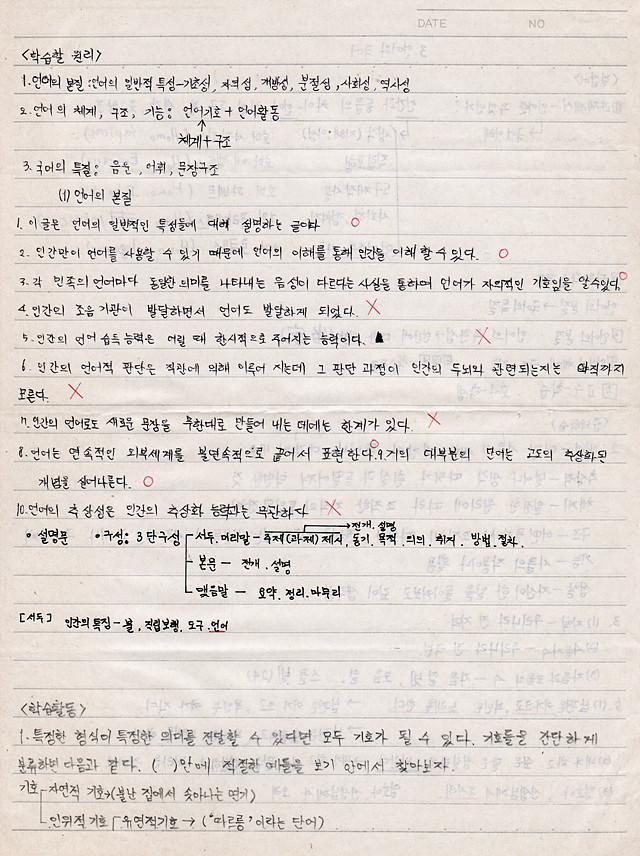 DATE NO
<학습할 원리>
1. 언어의 본질 : 언어의 일반적 특성-기호성, 자의성, 개방성, 분절성, 사회성, 역사성
2. 언어의 체계, 구조, 기능: 언어기호 + 언어활동
↑
체계+구조
3. 국어의 특질: 음운, 어휘, 문장구조
(1) 언어의 본질
1. 이 글은 언어의 일반적인 특성들에 대해 설명하는 글이다 ○
2. 인간만이 언어를 사용할 수 있기 때문에 언어의 이해를 통해 인간을 이해 할 수 있다. ○
3. 각 민족의 언어마다 동일한 의미를 나타내는 음성이 다르다는 사실을 통하여 언어가 자의적인 기호임을 알 수 있다. ○
4. 인간의 조음 기관이 발달하면서 언어도 발달하게 되었다. ×
5. 인간의 언어 습득 능력은 어릴 때 한시적으로 주어지는 능력이다. ×
6. 인간의 언어적 판단은 직관에 의해 이루어 지는데 그 판단 과정이 인간의 두뇌와 관련 되는지는 아직까지
모른다. ×
7. 인간의 언어로도 새로운 문장을 무한대로 만들어 내는 데에는 한계가 있다. ×
8. 언어는 연속적인 외부세계를 불연속적으로 끊어서 표현한다. ○ 9. 거의 대부분의 단어는 고도의 추상화된
개념을 실어나른다. ○
10. 언어의 추상성은 인간의 추상화 능력과는 무관하다 ×
→전개. 설명
• 설명문 • 구성: 3단구성 서두. 머리말 - 주제(과제) 제시, 동기. 목적. 의의. 취지. 방법. 절차.
본문 - 전개. 설명
맺음말 - 요약. 정리. 마무리
[서두] 인간의 특징 - 불, 직립보행, 도구, 언어
<학습활동>
1. 특정한 형식이 특정한 의미를 전달할 수 있다면 모두 기호가 될 수 있다. 기호들을 간단하게
분류하면 다음과 같다. ( )안에 적절한 예들을 보기 안에서 찾아보자.
기호 자연적 기호(불난 집에서 솟아나는 연기)
인위적기호 유연적기호 → ("따르릉"이라는 단어)